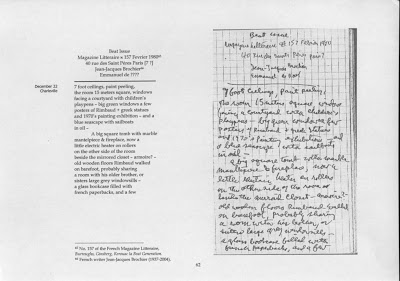 Beat Issue
Magazine Litteraire × 157 Fevrier 1980⁶²
40 rue des Saint Péres Paris [? ?]
Jean-Jacques Brochier⁶³
Emmanuel de ????
December 22
Charleville
7 foot ceilings, paint peeling,
the room 15 meters square, windows
facing a courtyard with children's
playpens – big green windows a few
posters of Rimbaud + greek statues
and 1970's painting exhibition – and a
blue seascape with sailboats
in oil –
A big square tomb with marble
mantelpiece & fireplace, now a
little electric heater on rollers
on the other side of the room
beside the mirrored closet – armoire? –
old wooden floors Rimbaud walked
on barefoot, probably sharing
a room with his older brother, or
sisters large grey windowsills –
a glass bookcase filled with
french paperbacks, and a few
⁶² No. 157 of the French Magazine Litteraire,
Burroughs, Ginsberg, Kerouac: la Beat Generation.
⁶³ French writer Jean-Jacques Brochier (1937-2004).
62
Beat issue
Magazine Litteraire # 157 Fevrier 1980
40 rue des Saint Péres Paris
Jean-Jacques Brochier
Emmanuel de
7 foot ceilings, paint peeling,
the room 15 meters square, windows
facing a courtyard with children's
playpens – big green windows a few
posters of Rimbaud + greek statues
and 1970's painting exhibition – and
a blue seascape – with sailboats
in oil –
A big square tomb with marble
mantelpiece & fireplace, now a
little electric heater on rollers
on the other side of the room
beside the mirrored closet – armoire? –
old wooden floors Rimbaud walked
on barefoot, probably sharing
a room with his older brother, or
sisters large grey windowsills –
a glass bookcase filled with
french paperbacks, and a few